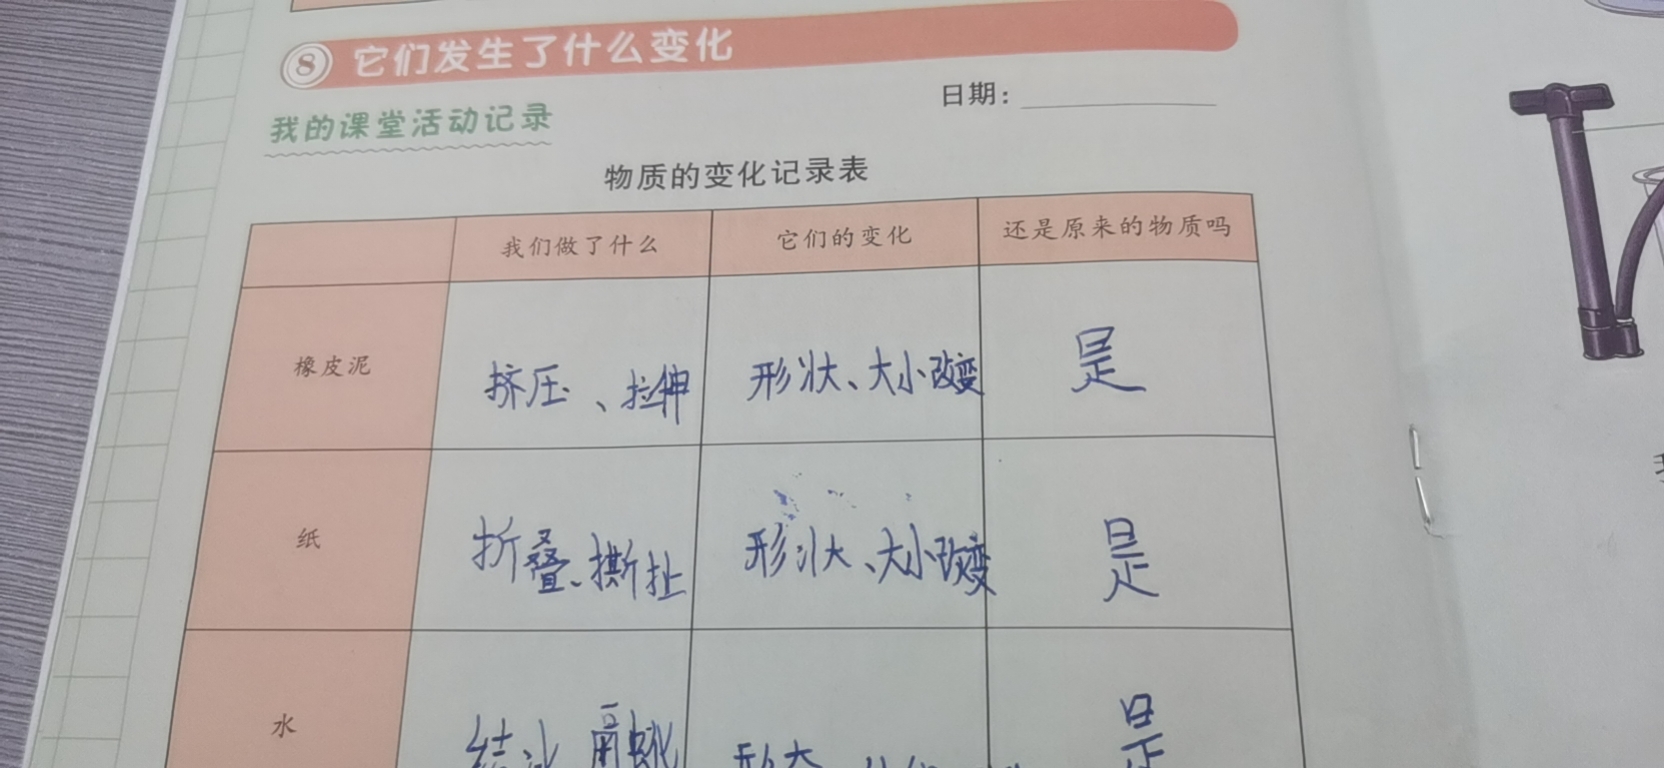 8 它们发生了什么变化
我的课堂活动记录
日期：
物质的变化记录表
我们做了什么 它们的变化 还是原来的物质吗
橡皮泥 挤压、拉伸 形状、大小改变 是
纸 折叠、撕扯 形状、大小改变 是
水 结冰 融化 是